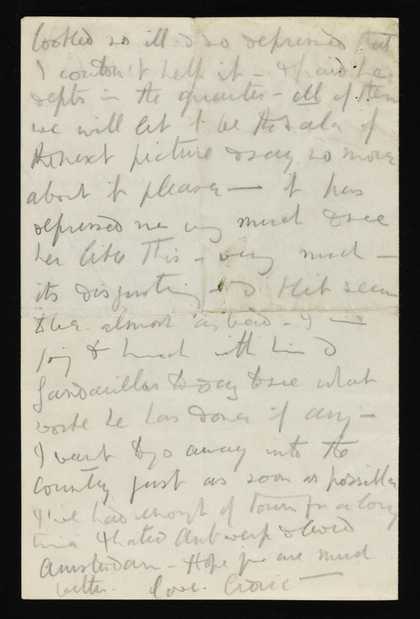 looked so ill & so depressed that
I couldn't help it – & paid he
depts in the quarter – all of them
we will let t be the sale of
the next picture & say so more
about it please – It has
depressed me very much to see
her like this – very much –
its disgusting – & that seem
to be almost as bad – I
to lunch with him &
to day to see what
work he has done if any –
I want to go away into the
country just as soon as possible
I've had enough of town for a long
time I hated Antwerp & loved
Amsterdam – Hope you are much
better. love.